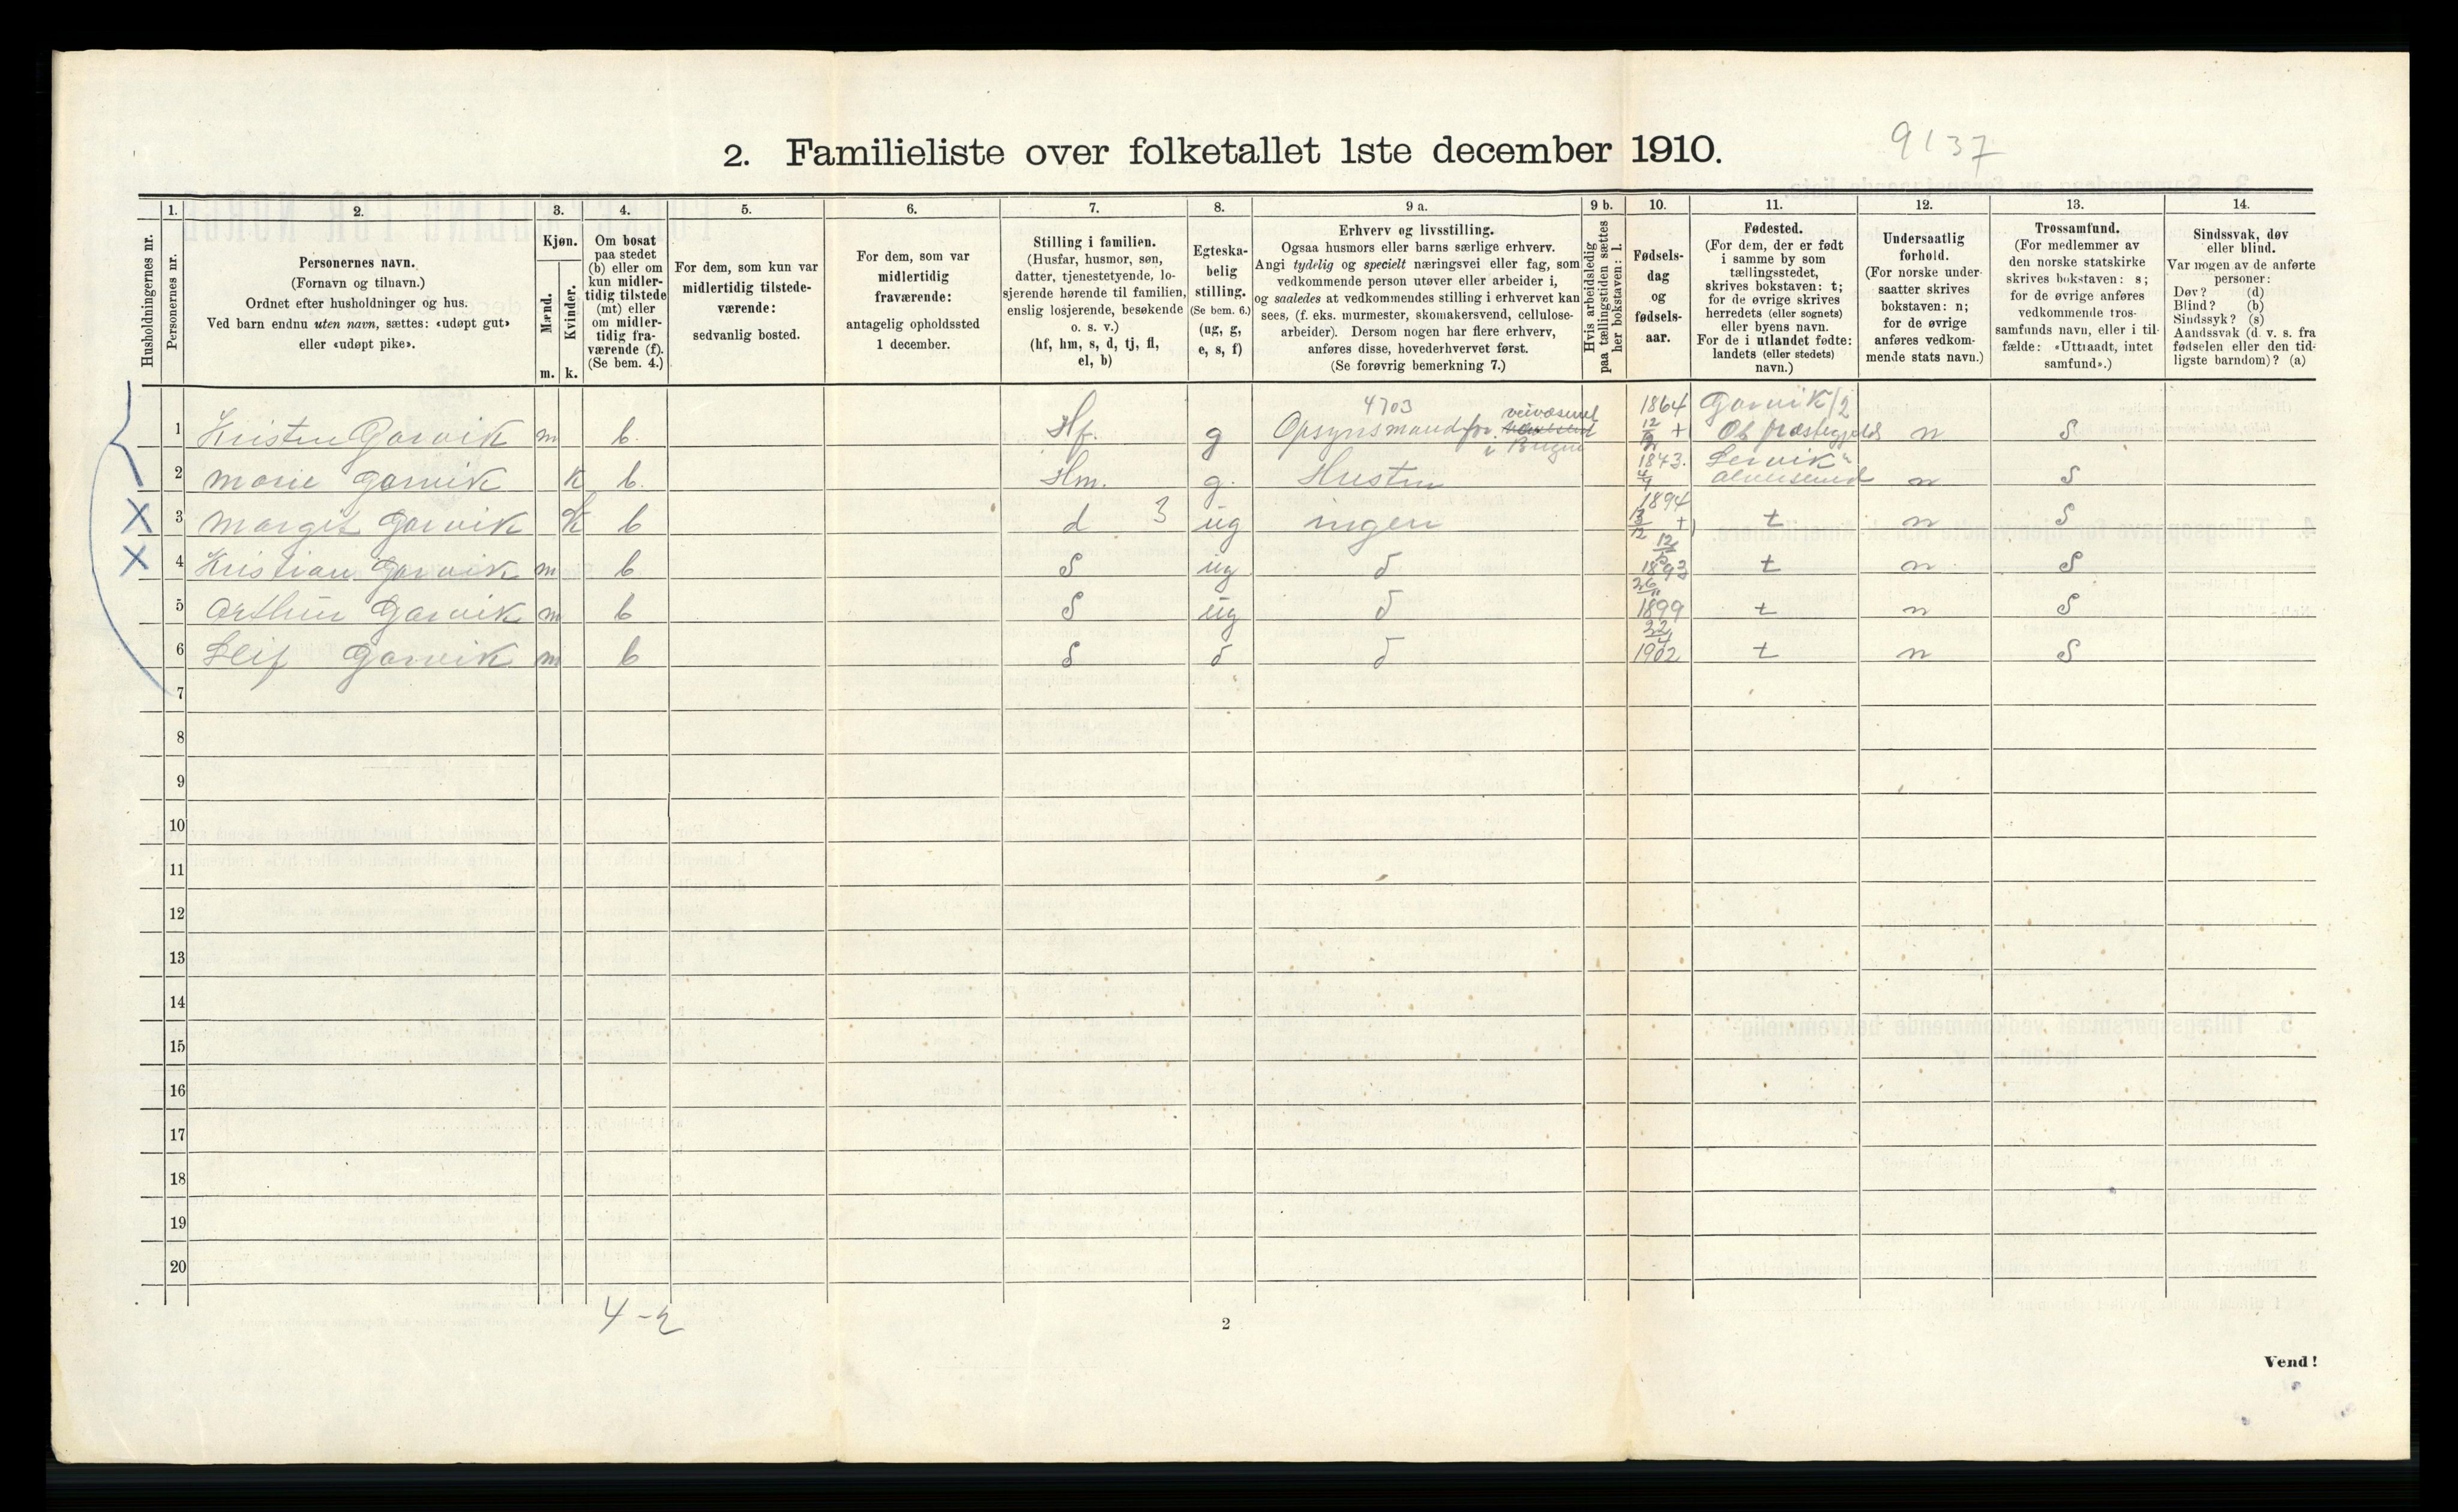 2. Familieliste over folketallet 1ste december 1910.
9137
Husholdningernes nr.
1.
Personernes nr.
2.
Personernes navn.
(Fornavn og tilnavn.)
Ordnet efter husholdninger og hus.
Ved barn endnu uten navn, sættes: «udøpt gut»
eller «udøpt pike».
3.
Kjøn.
Mænd.
Kvinder.
m. k.
4.
Om bosat
paa stedet
(b) eller om
kun midler-
tidig tilstede
(mt) eller
om midler-
tidig fra-
værende (f).
(Se bem. 4.)
5.
For dem, som kun var
midlertidig tilstede-
værende:
sedvanlig bosted.
6.
For dem, som var
midlertidig
fraværende:
antagelig opholdssted
1 december.
7.
Stilling i familien.
(Husfar, husmor, søn,
datter, tjenestetyende, lo-
sjerende hørende til familien,
enslig losjerende, besøkende
o. s. v.)
(hf, hm, s, d, tj, fl,
el, b)
8.
Egteska-
belig
stilling.
(Se bem. 6.)
(ug, g,
e, s, f)
9 a.
Erhverv og livsstilling.
Ogsaa husmors eller barns særlige erhverv.
Angi tydelig og specielt næringsvei eller fag, som
vedkommende person utøver eller arbeider i,
og saaledes at vedkommendes stilling i erhvervet kan
sees, (f. eks. murmester, skomakersvend, cellulose-
arbeider). Dersom nogen har flere erhverv,
anføres disse, hovederhvervet først.
(Se forøvrig bemerkning 7.)
9 b.
Hvis arbeidsledig
paa tællingstiden sættes
her bokstaven: l.
10.
Fødsels-
dag
og
fødsels-
aar.
11.
Fødested.
(For dem, der er født
i samme by som
tællingsstedet,
skrives bokstaven: t;
for de øvrige skrives
herredets (eller sognets)
eller byens navn.
For de i utlandet fødte:
landets (eller stedets)
navn.)
12.
Undersaatlig
forhold.
(For norske under-
saatter skrives
bokstaven: n;
for de øvrige
anføres vedkom-
mende stats navn.)
13.
Trossamfund.
(For medlemmer av
den norske statskirke
skrives bokstaven: s;
for de øvrige anføres
vedkommende tros-
samfunds navn, eller i til-
fælde: «Uttraadt, intet
samfund».)
14.
Sindssvak, døv
eller blind.
Var nogen av de anførte
personer:
Døv? (d)
Blind? (b)
Sindssyk? (s)
Aandssvak (d. v. s. fra
fødselen eller den tid-
ligste barndom)? (a)
4703
1 Kristen Garvik m b. Hf. g Opsynsmand for veivæsenet i Bergen 1864 12/12 + Garvik/2 n S
2 Marie Garvik k b. Hm. g. Hustru 1843. 4/9 n S
X 3 Margit Garvik K b d 3 ug ingen 1894 13/12 +) t n S
X 4 Kristian Garvik m b S ug d 1893 t n S
5 Arthur Garvik m b S ug d 26/11 1899 t n S
6 Leif Garvik m b S d d 22/4 1902 t n S
7
8
9
10
11
12
13
14
15
16
17
18
19
20
4-2
2
Vend!